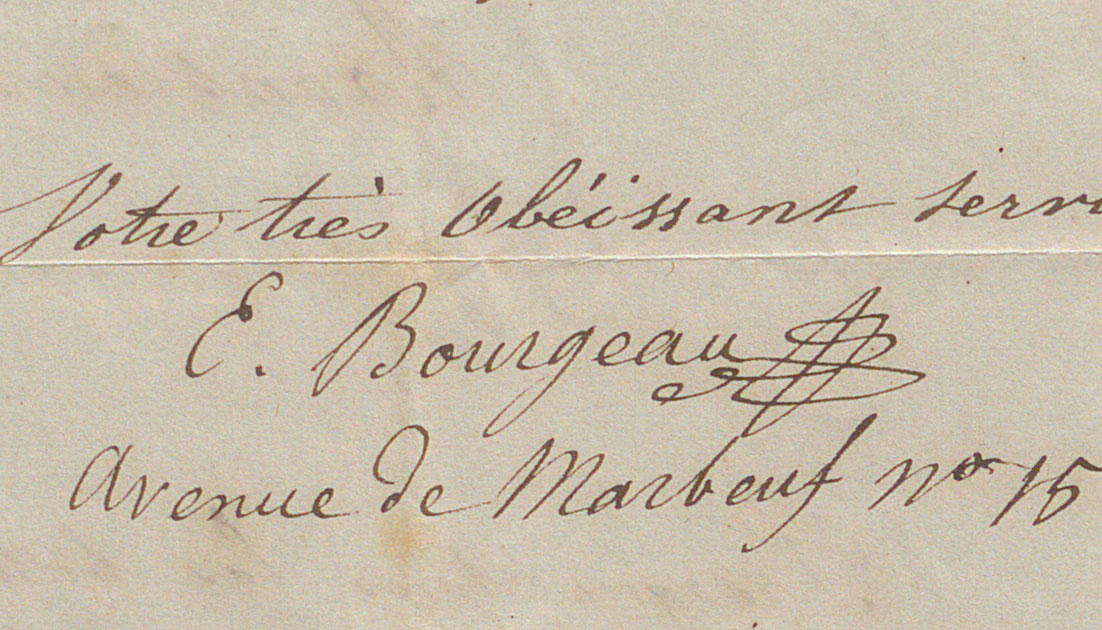 Votre très obéissant serv
E. Bourgeau
Avenue de Marbeuf no 15